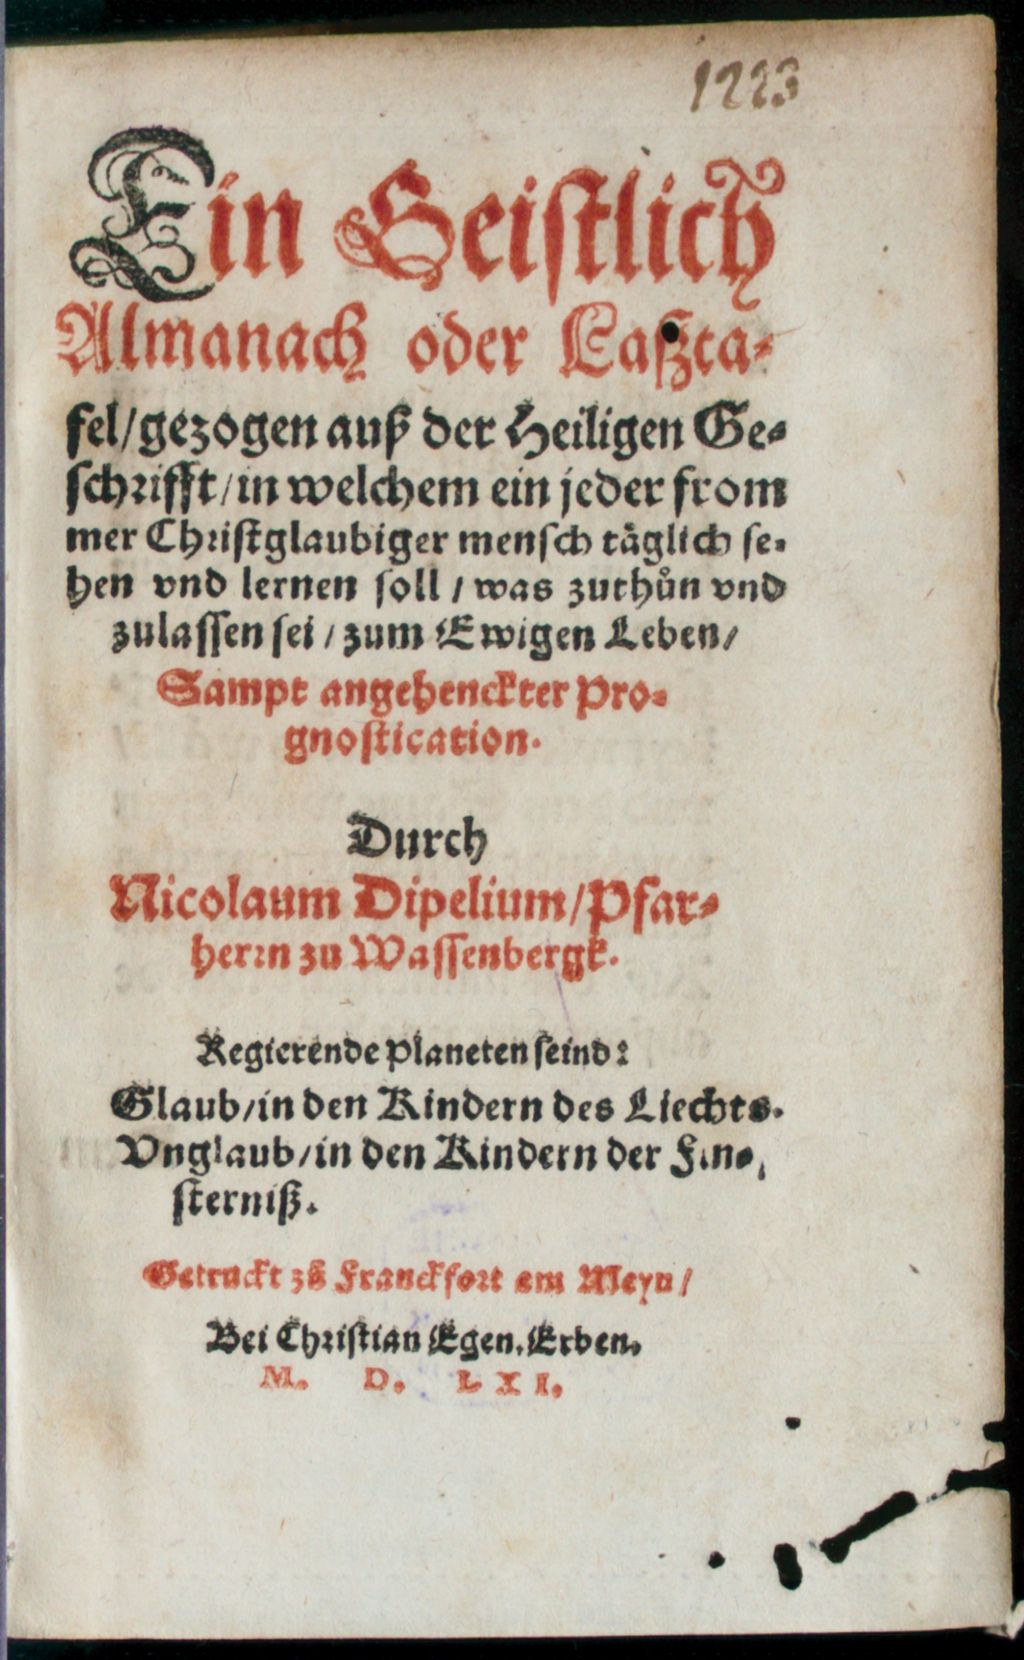 1223
Ein Geistlich
Almanach oder Laßta-
fel/ gezogen auß der Heiligen Ge-
schrifft/ in welchem ein jeder from
mer Christglaubiger mensch täglich se-
hen vnd lernen soll / was zuthůn vnd
zulassen sei / zum Ewigen Leben/
Sampt angehenckter Pro-
gnostication.
Durch
Nicolaum Dipelium/ Pfar-
herrn zu Wassenbergk.
Regierende Planeten seind:
Glaub/ in den Kindern des Liechts.
Vnglaub/ in den Kindern der Fin-
sterniß.
Getruckt zů Franckfort am Meyn/
Bei Christian Egen. Erben.
M. D. LXI.